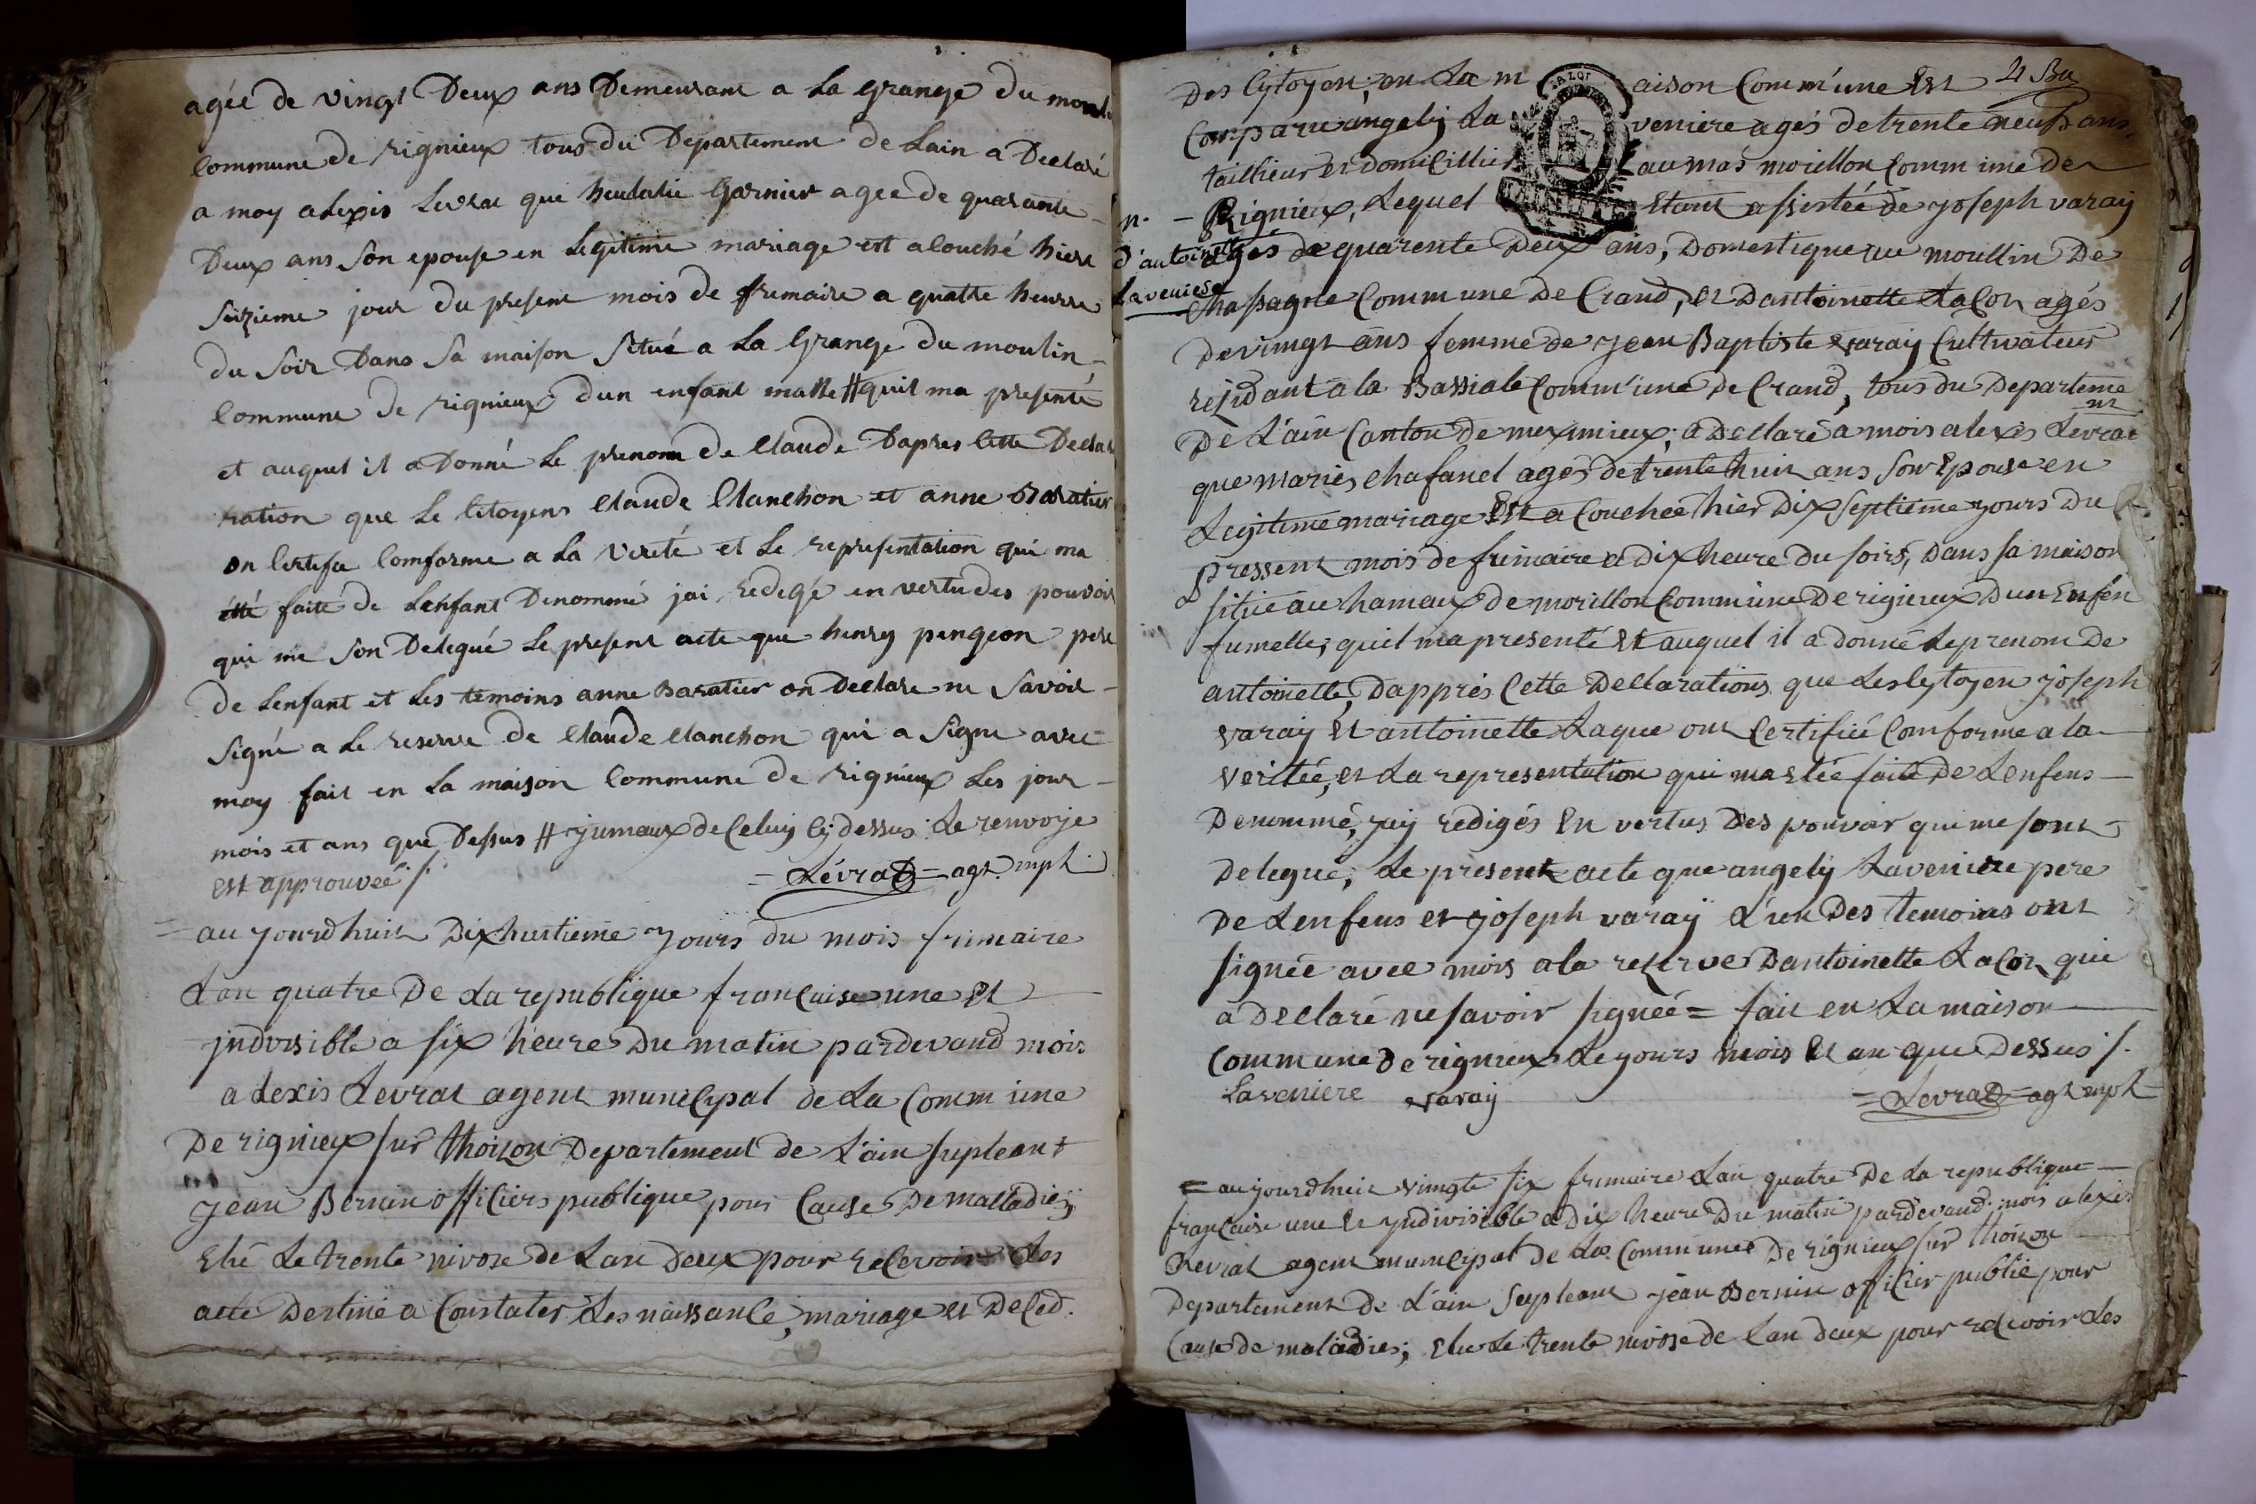 agée de vingt Deux ans Demeurant a La grange du moul
Commune de rignieux tous du Departement de Lain a Declaré
a moy alexis Levrat que heulalie Garnier agee de quarante
Deux ans Son epouse en Legitime mariage est alouché hiere
Seizieme jour du present mois de frimaire a quattre heurre
du Soir Dans Sa maison Situé a La Grange du moulin
Commune de rignieux dun enfant malle # quil ma presenté
et auquel il a Donné Le prenom de Claude Dapres Cette Declar
ration que Le Citoyens Claude Clanchon et anne Baratier
on Certifa Comforme a La Verité et Le representation qui ma
été faite de Lenfant Denommé jai redegé en vertu des pouvoir
qui me Son Delegué Le present acte que henry pingeon pere
de Lenfant et Les temoins anne Baratier on Declare ne Savoir
Signé a Le reserve de Claude Clanchon qui a Signe avec
moy fait en La maison Commune de rignieux Les jour
mois et ans que Dessus # jumeaux de Celuy Cy dessus Le renvoye
est approuvée /.
= Levrat = agt mpl
au jourdhuit Dix huitieme jours du mois frimaire
Lan quatre De La republique francaise une et
jndivisible a six heure Du matin pardevand mois
alexis Levrat agent municypal de La Comm une
De rignieux sur thoizon Departement de L'ain supleant
jean Bernin officiers publique pour Cause De malladie
Elu Le trente nivose de Lan deux pour recevoir Les
acte Destiné a Constater Les naissance, mariage et Deced.
4 Bu
Des Cytoyen; en La m aison Comm'une Est
Comparu angely La veniere agés de trente neuf ans,
taillieur et domicillier au mas morillon Comm une de
n. - Rignieux, Lequel Etant assistée de joseph varay
d'antoinette agés de quarente Deux ans, Domestique au moullin De
Laveniere Chassagne Commune De Crand, et Dantoinette LaCon agés
de vingt ans femme de jean Baptiste varay Cultivateur
residant a la Bassiale Comm'une De Crand, tous du Departeme
nt
De L'ain Canton de meximieux; a Declaré a mois alexis Levrat
que maries chafanel agés de trente huit ans son Epouse en
Legitime mariage Est a Couchée hier Dix septieme jours du
pressent mois de frimaire a Dix heure du soirs, Dans sa maison
sitüe au hameaux de morillon Commune De rignieux Dun Enfen
fumelle; quil ma presenté Et auquel il a donné Le prenom De
antoinette, Dapprés Cette Declarations que Les Cytoyen joseph
varay Et antoinette Laque ont Certifié Comforme a la
veritée, et La representation qui ma Etée faite De Lenfens
Denommé, jay redigés En vertus Des pouvoir qui me sont
Delegué; Le present acte que angely Laveniere pere
De Lenfens et joseph varaÿ L'un Des temoins ont
signée avec mois a la reserve Dantoinette LaCon qui
a Declaré ne savoir signéé = fait en La maison
Commune De rignieux Le jours mois Et an que Dessus /.
Laveniere varay = Levrat = agt mpl
= aujourdhuit vingte six frimaire Lan quatre De La republique
française une Et jndivisible a Dix heure Du matin pardevand mois alexis
Levrat agent municypal de La Commune De rignieux sur thoizon
Departement De L'ain supleant jean Bernin officier public pour
Cause de maladies; elu Le trente nivose de Lan deux pour recevoir Les